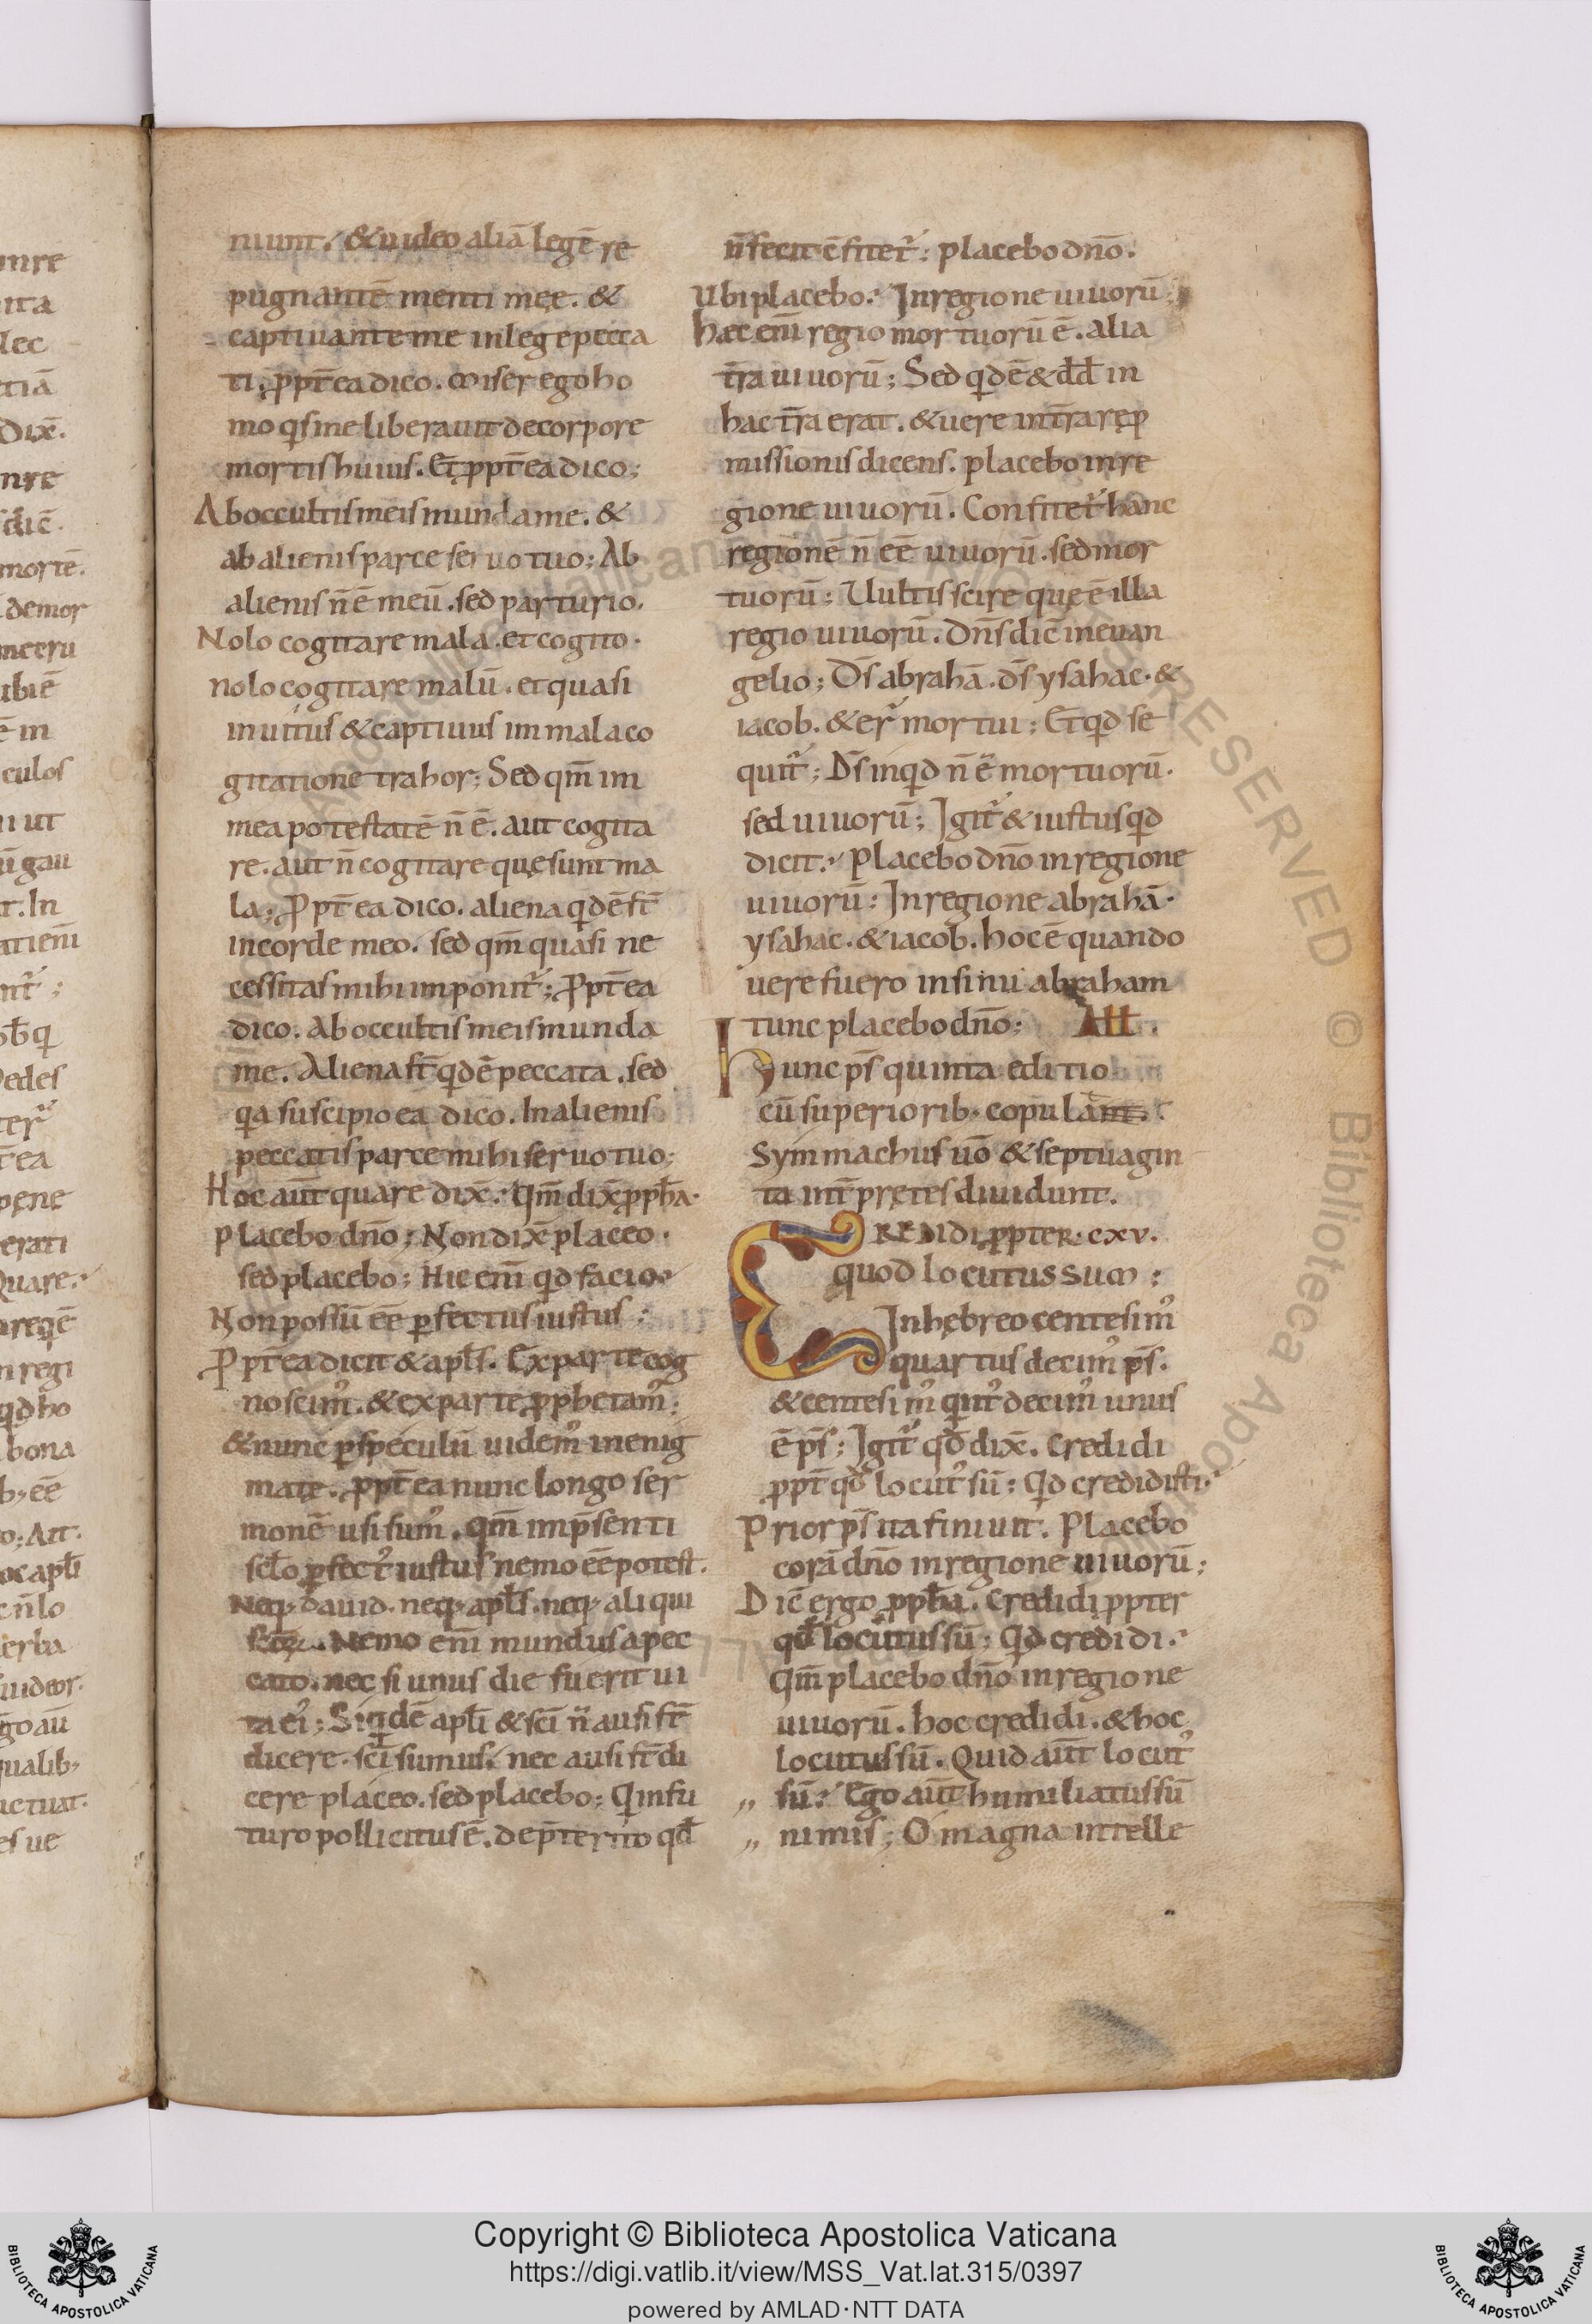 niunt. & uideo aliā legē re
pugnantē menti meę. &
captiuante me in lege pecca
ti; ꝓpt̄ea dico. Miser ego ho
mo qͥs me liberauit de corpore
mortis huius. Et ꝓpt̄ea dico;
Ab occultis meis munda me. &
ab alienis parce seruo tuo; Ab
alienis n̄ ē meū. sed parturio.
Nolo cogitare mala. et cogito.
nolo cogitare malū. et quasi
inuitus & captiuus im mala co
gitatione trahor; Sed qm̄ im
mea potestatē n̄ ē. aut cogita
re. aut n̄ cogitare quę sunt ma
la; Ꝓpt̄ea dico. aliena qͥdē st̄
in corde meo. sed qm̄ quasi ne
cessitas mihi imponit̉; Ꝓpt̄ea
dico. Ab occultis meis munda
me. Aliena st̄ qͥdē peccata. sed
qͥa suscipio ea dico. In alienis
peccatis parce mihi seruo tuo;
Hoc aut̄ quare dix̄. Qm̄ dix̄ ꝓph̄a.
Placebo dn̄o; Non dix̄ placeo.
sed placebo; Hic enī qd facio.
Non possū eē ꝑfectus iustus;
Ꝓpt̄ea dicit & apl̄s. Ex parte cog
noscim̉. & ex parte ꝓphetam̉;
& nunc ꝑ speculū uidem̉ in enig
mate. ꝓpt̄ea nunc longo ser
monē usi sum̉. qm̄ im p̄senti
scl̄o ꝑfect̉ iustus nemo eē potest.
Neq; dauid. neq; apl̄s. neq; aliqui
scōꝝ. Nemo enī mundus a pec
cato. nec si unus die fuerit ui
ta eỉ; Siqͥdē apl̄i & sc̄i n̄ ausi st̄
dicere. sc̄i sumus. nec ausi st̄ di
cere placeo. sed placebo; Qͥ in fu
turo pollicitus ē. de p̄terito qd̄
n̄ fecit c̄fitet̉; placebo dn̄o.
Ubi placebo. In regione uiuorū;
hęc enī regio mortuorū ē. alia
t̄ra uiuorū; Sed qͥdē & dd̄ in
hac t̄ra erat. & uere in t̄ra reꝓ
missionis dicens. placebo in re
gione uiuorū. Confitet̉ hanc
regionē n̄ eē uiuorū. sed mor
tuorū; Uultis scire quę ē illa
regio uiuorū. Dn̄s dic̄ in euan
gelio; Ds̄ abrahā. ds̄ ysahac. &
iacob. & er̉ mortui; Et qd se
quit̉; Ds̄ inqͥd n̄ ē mortuorū.
sed uiuorū; Igit̉ & iustus qd
dicit. Placebo dn̄o in regione
uiuorū; In regione abrahā.
ysahac. & iacob. hoc ē quando
uere fuero in sinu abraham
tunc placebo dn̄o; All̄.
Hunc ps̄ quinta editio
cū superiorib; copulant.
Symmachus uō & septuagin
ta int̄pretes diuidunt.
CREDIDI ꝓPTER. CXV.
quod locutus sum;
In hębreo centesim̉
quartus decim̉ ps̄.
& centesim̉ qͥnt̉ decim̉ unus
ē ps̄; Igit̉ qd̄ dix̄. Credidi
ꝓpt̄ qd̄ locut̉ sū; Qd credidisti.
Prior ps̄ ita finiuit. Placebo
corā dn̄o in regione uiuorū;
Dic̄ ergo ꝓph̄a. Credidi ꝓpter
qd̄ locutus sū; Qd credidi.
Qm̄ placebo dn̄o in regione
uiuorū. hoc credidi. & hoc
locutus sū. Quid aut̄ locut̉
sū. Ego aut̄ humiliatus sū
nimis; O magna intelle
Copyright © Biblioteca Apostolica Vaticana
https://digi.vatlib.it/view/MSS_Vat.lat.315/0397
powered by AMLAD·NTT DATA
BIBLIOTECA APOSTOLICA VATICANA
BIBLIOTECA APOSTOLICA VATICANA